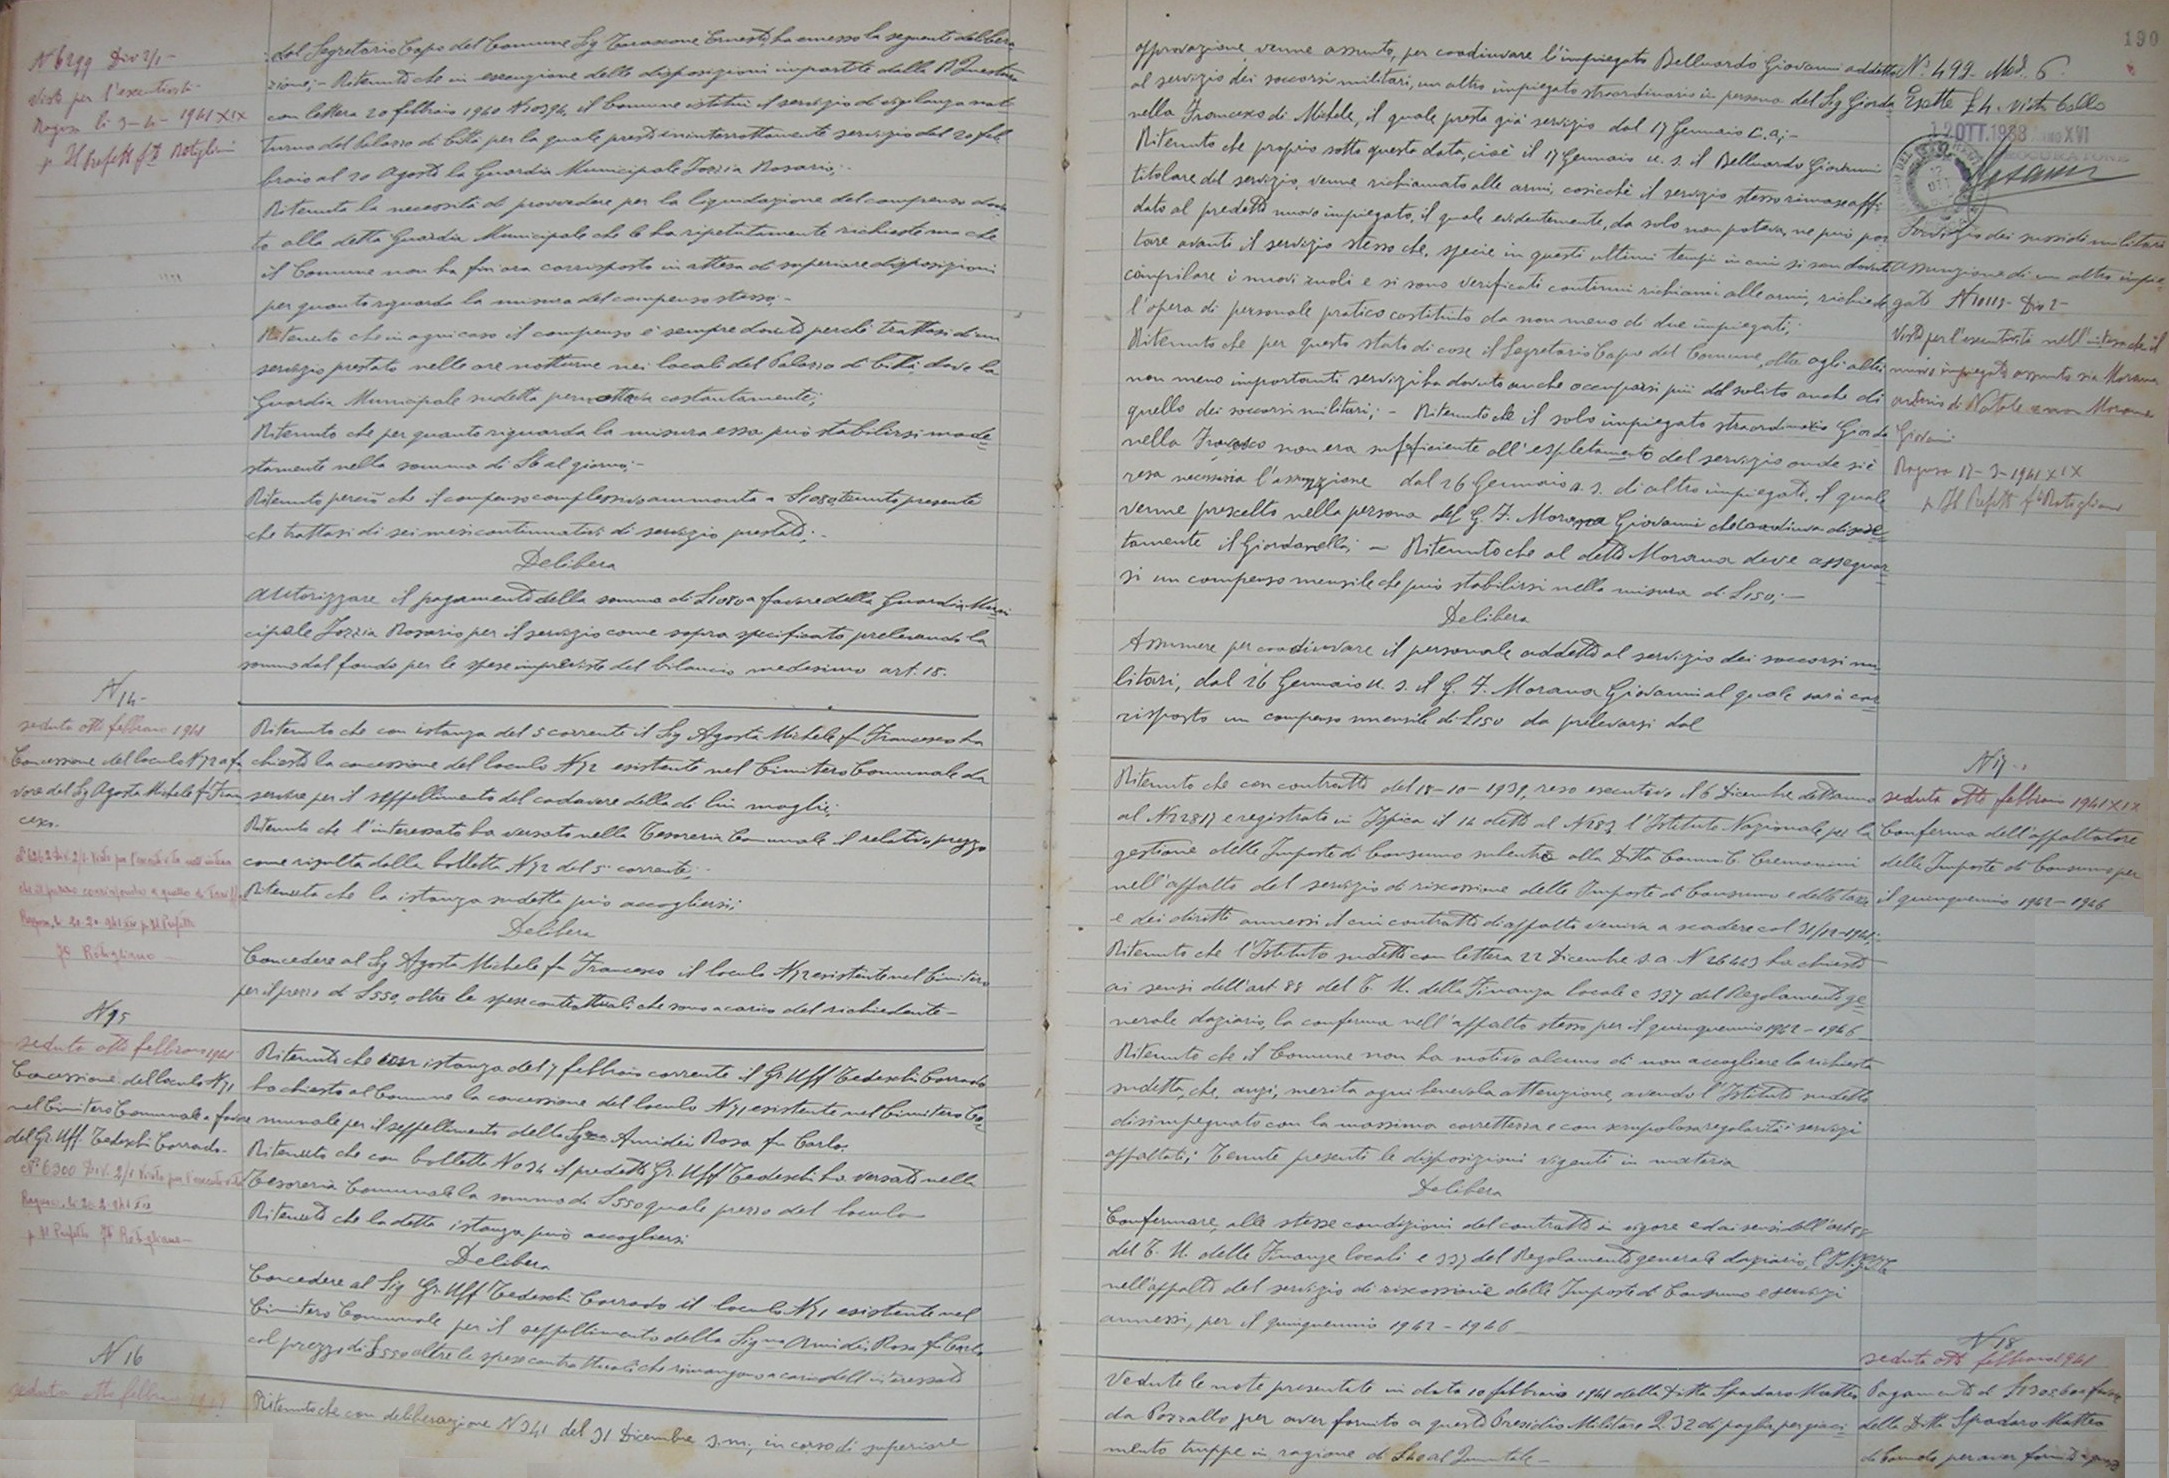 N 6299 Div 2/1-
Visto per l'esecutività-
Ragusa li 3-4-1941 XIX
p. Il Prefetto
dal Segretario Capo del Comune Sig Ernesto, ha emesso la seguente delibera
zione;- Ritenuto che in esecuzione delle disposizioni impartite dalla R Questura
con lettera 20 febbraio 1940 il Comune istituì il servizio di vigilanza not
turna del Palazzo di Città per la quale prestò ininterrottamente servizio dal 20 feb
braio al 20 Agosto la Guardia Municipale Iozzia Rosario;-
Ritenuta la necessità di provvedere per la liquidazione del compenso dovu
to alla detta Guardia Municipale che lo ha ripetutamente richiesto ma che
il Comune non ha fin ora corrisposto in attesa di superiore disposizioni
per quanto riguarda la misura del compenso stesso;-
Ritenuto che in ogni caso il compenso è sempre dovuto perchè trattasi di un
servizio prestato nelle ore notturne nei locali del Palazzo di Città dove la
Guardia Municipale sudetta pernottava costantemente;
Ritenuto che per quanto riguarda la misura essa può stabilirsi mode
stamente nella somma di £6 al giorno;-
Ritenuto perciò che il compenso complessivo ammonta a £1080, tenuto presente
che trattasi di sei mesi continuativi di servizio prestato;-
Delibera
Autorizzare il pagamento della somma di £1080 a favore della Guardia Muni
cipale Iozzia Rosario per il servizio come sopra specificato prelevando la
somma dal fondo per le spese impreviste del bilancio medesimo art. 18.
N 14-
seduta otto febbraio 1941
Concessione del loculo N 72 a fa
vore del Sig Agosta Michele fu Fran
cesco.
Ritenuto che con istanza del 5 corrente il Sig Agosta Michele fu Francesco ha
chiesto la concessione del loculo N 72 esistente nel Cimitero Comunale da
servire per il seppellimento del cadavere della di lui moglie;
Ritenuto che l'interessato ha versato nella Tesoreria Comunale il relativo prezzo
come risulta dalla bolletta N 72 del 5 corrente;
Ritenuto che la istanza sudetta può accogliersi;
Delibera
Concedere al Sig Agosta Michele fu Francesco il loculo N 72 esistente nel Cimitero
per il prezzo di £550, oltre le spese contrattuali che sono a carico del richiedente-
N 15
seduta otto febbraio 1941
Concessione del loculo N 71
nel Cimitero Comunale a favore
del Gr. Uff. Tedeschi Corrado-
N° 6300 Div. 2/1 Visto per l'esecutività
Ritenuto che con istanza del 7 febbraio corrente il Gr Uff Tedeschi Corrado
ha chiesto al Comune la concessione del loculo N 71 esistente nel Cimitero Co
munale per il seppellimento della Sig.na Amidei Rosa fu Carlo.
Ritenuto che con bolletta il predetto Gr. Uff Tedeschi ha versato nella
Tesoreria Comunale la somma di £550 quale prezzo del loculo
Ritenuto che la detta istanza può accogliersi
Delibera
Concedere al Sig Gr. Uff Tedeschi Corrado il loculo N 71 esistente nel
Cimitero Comunale per il seppellimento della Sig.na Amidei Rosa fu Carlo
col prezzo di £550 oltre le spese contrattuali che rimangono a carico dell'interessato
N 16
seduta otto febbraio 1941
Ritenuto che con deliberazione N 341 del 31 Dicembre s.m., in corso di superiore
190
approvazione, venne assunto, per coadiuvare l'impiegato Belluardo Giovanni addetto
al servizio dei soccorsi militari, un altro impiegato straordinario in persona del Sig Giorda
nella Francesco di Michele, il quale presta già servizio dal 17 Gennaio c.a;-
Ritenuto che proprio sotto questa data, cioè il 17 Gennaio u. s. il Belluardo Giovanni
titolare del servizio, venne richiamato alle armi, cosicchè il servizio stesso rimase affi
dato al predetto nuovo impiegato, il quale evidentemente, da solo non poteva, ne può por
tare avanti il servizio stesso che, specie in questi ultimi tempi in cui si son dovuti
compilare i nuovi ruoli e si sono verificati continui richiami alle armi, richiede
l'opera di personale pratico costituito da non meno di due impiegati;
Ritenuto che per questo stato di cose il Segretario Capo del Comune, oltre agli altri
non meno importanti servizi ha dovuto anche occuparsi più del solito anche di
quello dei soccorsi militari;- Ritenuto che il solo impiegato straordinario Giorda
nella Francesco non era sufficiente all'espletamento del servizio onde si è
resa necessaria l'assunzione dal 26 Gennaio u. s. di altro impiegato, il quale
venne prescelto nella persona del G. F. Morana Giovanni che coadiuva
tamente il Giordanella;- Ritenuto che al detto Morana deve assegnar
si un compenso mensile che può stabilirsi nella misura di £150;-
Delibera
Assumere per coadiuvare il personale addetto al servizio dei soccorsi mi
litari, dal 26 Gennaio u. s. il G. F. Morana Giovanni al quale sarà cor
risposto un compenso mensile di £150 da prelevarsi dal
N° 499 Mod. 6
Esatte £4. visto bollo
12 OTT. 1938 ANNO XVI
PROCURATORE
Servizio dei sussidi militari
assunzione di un altro impie-
gato
Visto per l'esecutività nell'intesa che il
nuovo impiegato assunto sia Morana
Antonio di Natale e non Morana
Giovanni
Ragusa 17-3-1941 XIX
p. Il Prefetto
N 17-
seduta otto febbraio 1941 XIX
Conferma dell'appaltatore
delle Imposte di Consumo per
il quinquennio 1942-1946
Ritenuto che con contratto del 18-10-1939, reso esecutivo il 6 Dicembre detto anno
al N 22817 e registrato in Ispica il 14 detto al N 283, l'Istituto Nazionale per la
gestione delle Imposte di Consumo subentrò alla Ditta Comm. C. Cremonini
nell'appalto del servizio di riscossione delle Imposte di Consumo e delle tasse
e dei diritti annessi il cui contratto di appalto veniva a scadere col 31/12-1941;
Ritenuto che l'Istituto sudetto con lettera 22 Dicembre s.a N 26443 ha chiesto
ai sensi dell'art 88 del T. U. della Finanza locale e 337 del Regolamento ge
nerale daziario, la conferma nell'appalto stesso per il quinquennio 1942-1946
Ritenuto che il Comune non ha motivo alcuno di non accogliere la richiesta
sudetta, che, anzi, merita ogni benevola attenzione avendo l'Istituto sudetto
disimpegnato con la massima correttezza e con scrupolosa regolarità i servizi
appaltati; Tenute presenti le disposizioni vigenti in materia
Delibera
Confermare, alle stesse condizioni del contratto in vigore ed ai sensi dell'art 88
del T. U. delle Finanze locali e 337 del Regolamento generale daziario,
nell'appalto del servizio di riscossione delle Imposte di Consumo e servizi
annessi, per il quinquennio 1942-1946
N 18
seduta otto febbraio 1941
Vedute le note presentate in data 10 febbraio 1941 della Ditta Spadaro Matteo
da Pozzallo per aver fornito a questo Presidio Militare Q. 32 di paglia per giaci
mento truppe in ragione di £40 al Quintale-
Pagamento di
della Ditta Spadaro Matteo
di Carmelo per aver fornito